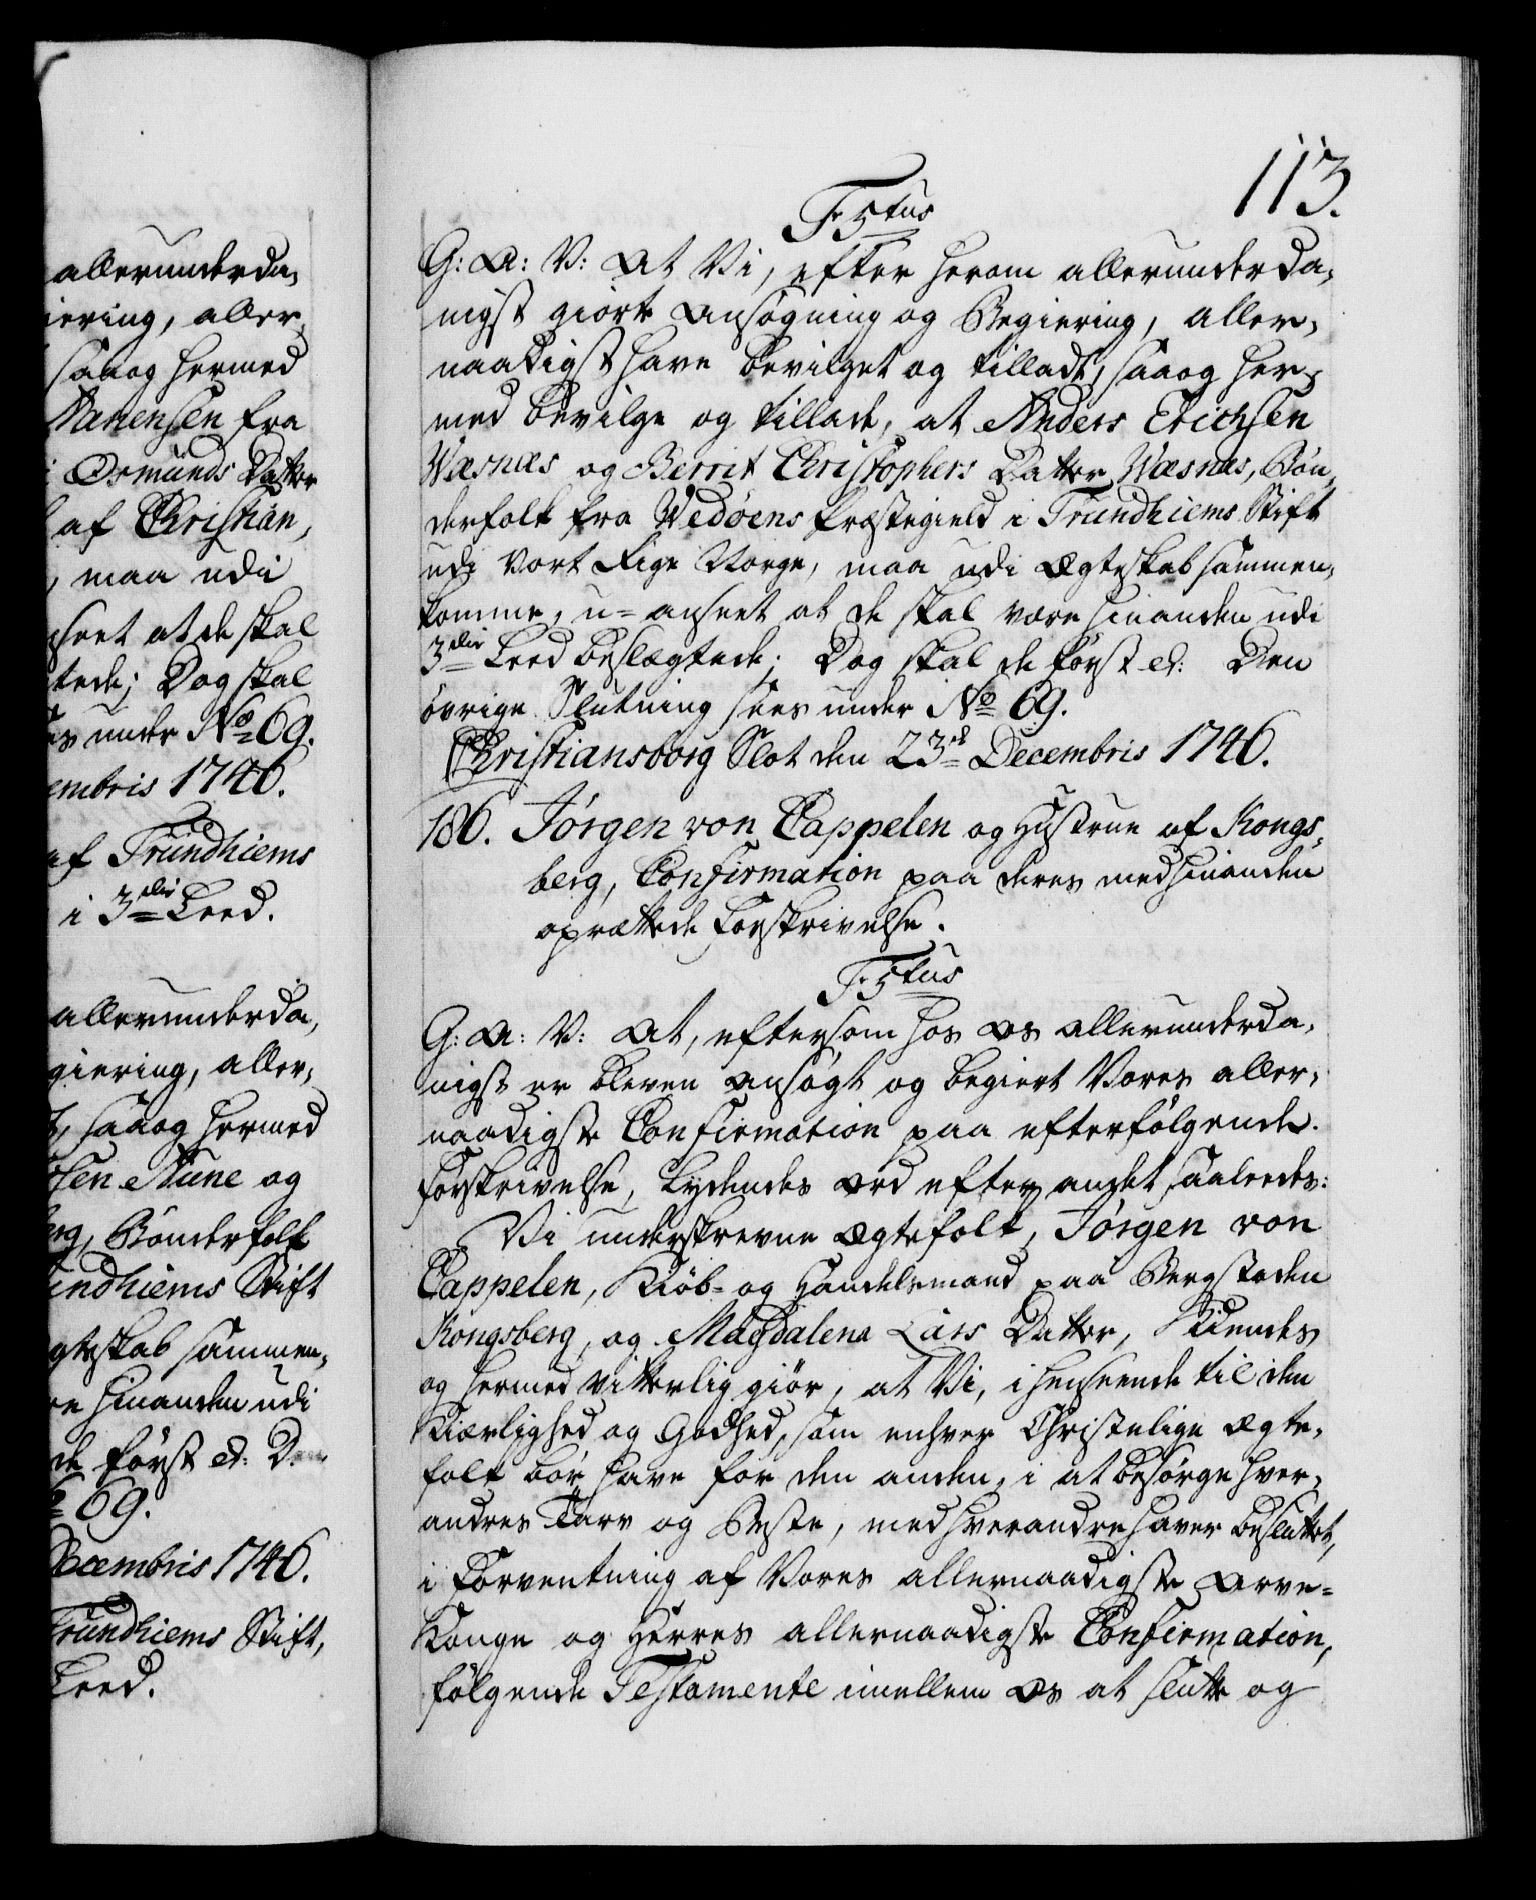 allerunderda,
iering, aller,
saaog hermed
Nanensen fra
Osmunds Datter
af Christian,
, maa udi
seet at de skal
tede; Dog skal
es under No 69.
embris 1746.
af Trundhiems
i 3die Leed.
allerunderda,
giering, aller,
t, saaog hermed
sen Nune og
erg, Bönderfolk
undhiems Stift
gteskab sammen,
re hinanden udi
de först etc: D.
69.
Decembris 1746.
Trundhiems Stift,
Leed.
113.
F5tus
G: A: V: At Vi, efter herom allerunderda,
nigst giort Ansøgning og Begiering, aller,
naadigst have bevilget og tilladt, saaog her,
med bevilge og tillade, at Anders Erichsen
Wæsnæs og Berrit Christophers Datter Wæsnæs, Bön,
derfolk fra Vedøens Præstegield i Trundhiems Stift
udi Vort Rige Norge, maa udi Ægteskab sammen,
komme, u-anseet at de skal være hinanden udi
3die Leed beslægtede; Dog skal de först etc: Den
övrige Slutning sees under No 69.
Christiansborg Slot den 23de Decembris 1746.
186. Jörgen von Cappelen og Hustrue af Kongs,
berg, Confirmation paa deres med hinanden
oprættede Forskrivelse.
F5tus
G: A: V: At, eftersom hos Os allerunderda,
nigst er bleven ansøgt og begiert Vores aller,
naadigste Confirmation paa efterfølgende
Forskrivelse, lydendes Ord efter andet saaledes:
Vi underskrevne Ægtefolk, Jörgen von
Cappelen, Kiöb- og Handelsmand paa Bergstaden
Kongsberg, og Magdalena Lars Datter, Kiendes
og hermed vitterlig giör, at Vi, i henseende til den
Kiærlighed og Godhed, som enhver Christelige Ægte,
folk bör have for den anden, i at besörge hver,
andres Tarv og Beste, med hverandre haver besluttet,
i Forventning af Vores allernaadigste Arve-
Konge og Herres allernaadigste Confirmation,
følgende Testamente imellem Os at slutte og